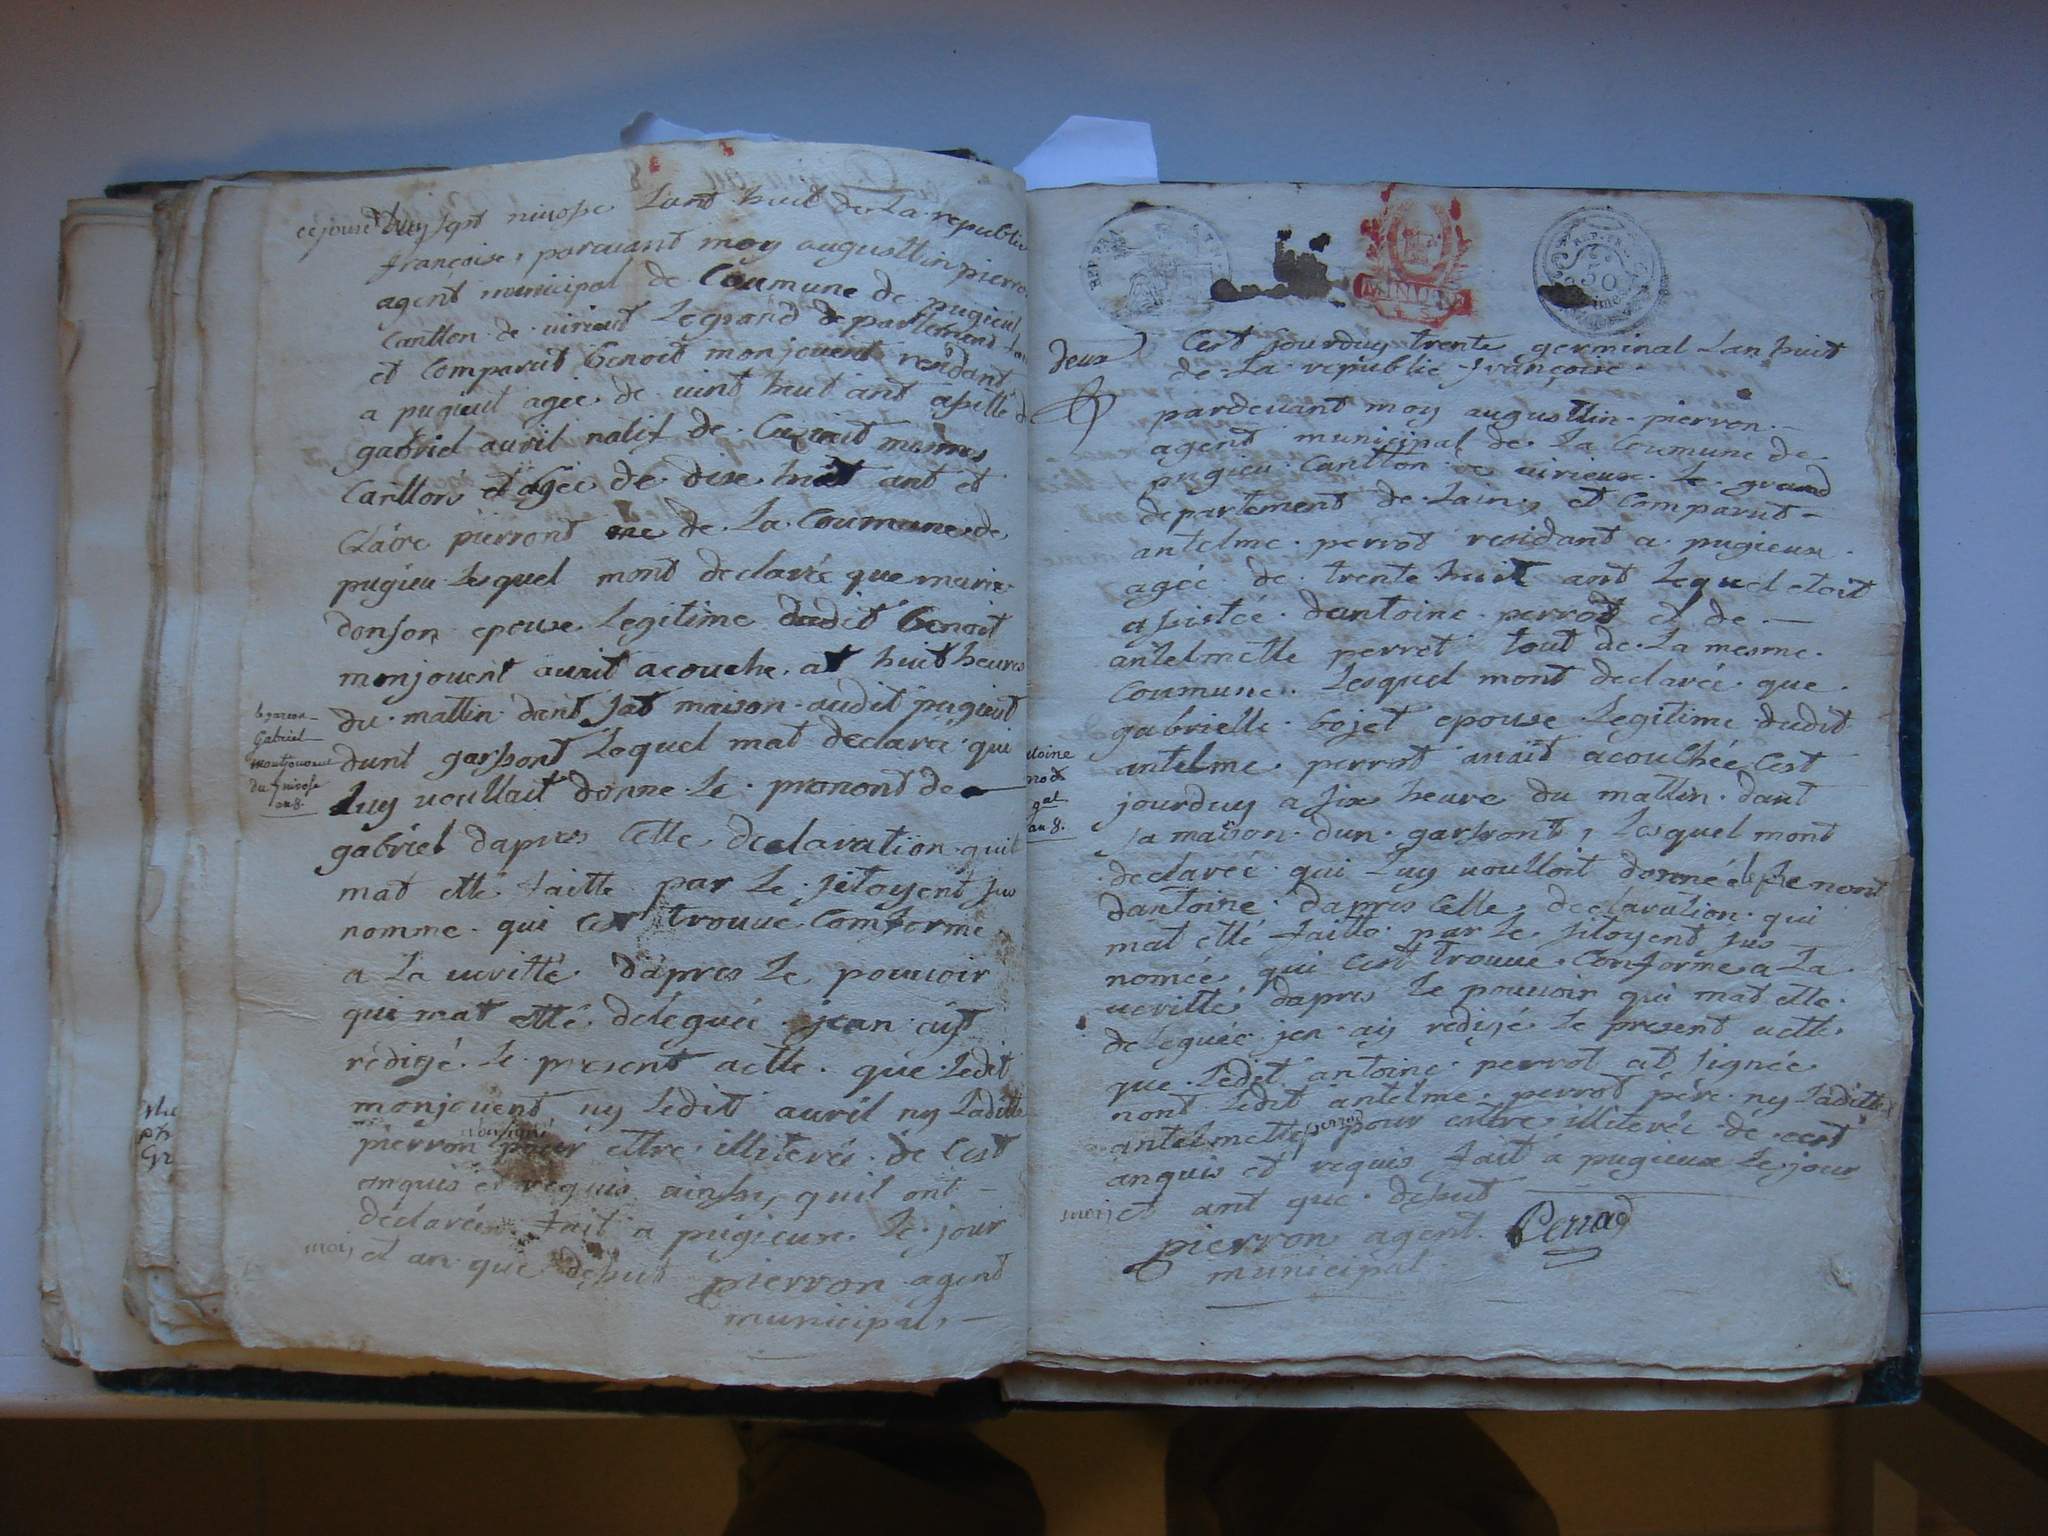 ce jourd'huy sept nivose Lant huit de La republi
françoise, paravant moy augusttin pierro
agent municipal de Coumune de pugieut
Cantton de virieut Legrand departement
et Comparut Benoit monjouent residant
a pugieut agée de vint huit ant assisté d
gabriel avril natif de
Cantton et agée de dixe huit ant et
Claire pierront de La Coumune de
pugieu Lesquel mont declarée que marie
donson epouse Legitime dudit Benoit
monjouent avait acouche at huit heures
du mattin dant sat maison audit pugieut
dunt garssont Lequel mat declaré qui
Luy voullait donne Le pronont de
gabriel dapres Cette declaration quil
mat etté faitte par Le sitoyent sus
nomme qui Cest trouve Comforme
a La veritté dapres Le pouvoir
qui mat etté deleguée jean
rédigé Le present actte que Ledit
monjouent ny Ledit avril ny Laditte
pierron pour ettre illiterée de Cest
anquis et requis ainssy quil ont
déclarée fait a pugieux Le jour
mois et an que debut pierron agent
municipal
le garcon
Gabriel
montjouvent
du 7 nivose
an 8.
REP. FRA
MINUTE
REP. FRA.
50
deux
Cest jourduy trente germinal Lan huit
de La republic françoise
pardevant moy augusttin pierron
agent municipal de La Coumune de
pugieu Cantton de virieux Le grand
departement de Lain, et Comparut
antelme perrot residant a pugieux
agée de trente huit ant Lequel etoit
assistée dantoine perrot et de
antelmette perrot tout de La mesme
Coumune Lesquel mont declarée que
gabrielle bojet epouse Legitime dudit
antelme perrot avait acouchée Cest
jourduy a six heure du mattin dant
sa maison dun garssont, Lesquel mont
declarée qui Luy voulloit donné Le nont
dantoine dapres Cette declaration qui
mat etté faitte par Le sitoyent sus
nomée qui Cest trouve Conforme a La
veritté dapres Le pouvoir qui mat etté
deleguée jen ais redigé Le present actte
que Ledit antoine perrot at signée
nont Ledit antelme perrot pére ny Laditte
antelmette perrod pour ettre illiterée de cest
anquis et requis fait a pugieux Le jour
mois et ant que debut
pierron agent Perrod
municipal
toine
rod
gal
an 8.